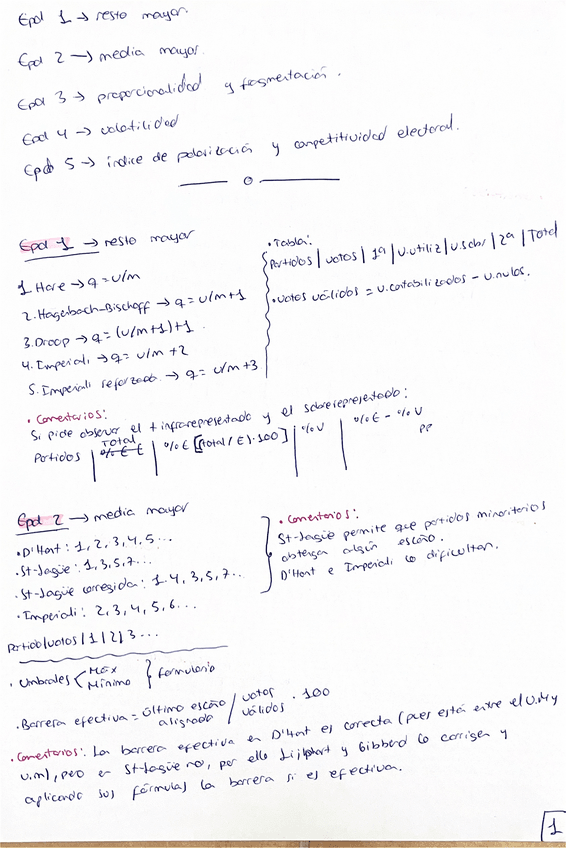 Epd 1 → resto mayor.
Epd 2 → media mayor.
Epd 3 → proporcionalidad y fragmentación.
Epd 4 → volatilidad
Epd 5 → índice de polarización y competitividad electoral.
Epd 1 → resto mayor
1 Hare → q = v/m
2. Hagenbach-Bischoff → q = v/m+1
3. Droop → q = (v/m+1)+1
4. Imperiali → q = v/m+2
5. Imperiali reforzado → q = v/m+3
• Tabla:
Partidos | votos | 1ª | v.utiliz | v.sobr | 2ª | Total
• votos válidos = v.contabilizados - v.nulos.
• Comentarios:
Si pide observar el + infrarepresentado y el sobrerepresentado:
Partidos | Total | %E [(total/E)·100] | %V | %E - %V
PP
Epd 2 → media mayor
• D'Hont: 1, 2, 3, 4, 5...
• St-Lagüe: 1, 3, 5, 7...
• St-Lagüe corregida: 1.4, 3, 5, 7...
• Imperiali: 2, 3, 4, 5, 6...
Partido | votos | 1 | 2 | 3...
• Comentarios:
St-Lagüe permite que partidos minoritarios
obtenga algún escaño.
D'Hont e Imperiali lo dificultan.
• Umbrales < Máx Mínimo } formulario
• Barrera efectiva = último escaño asignado / votos válidos · 100
• Comentarios: La barrera efectiva en D'Hont es correcta (pues está entre el U.M y
U.m), pero en St-Lagüe no, por ello Lijphart y Gibberd lo corrigen y
aplicando sus fórmulas la barrera si es efectiva.
1